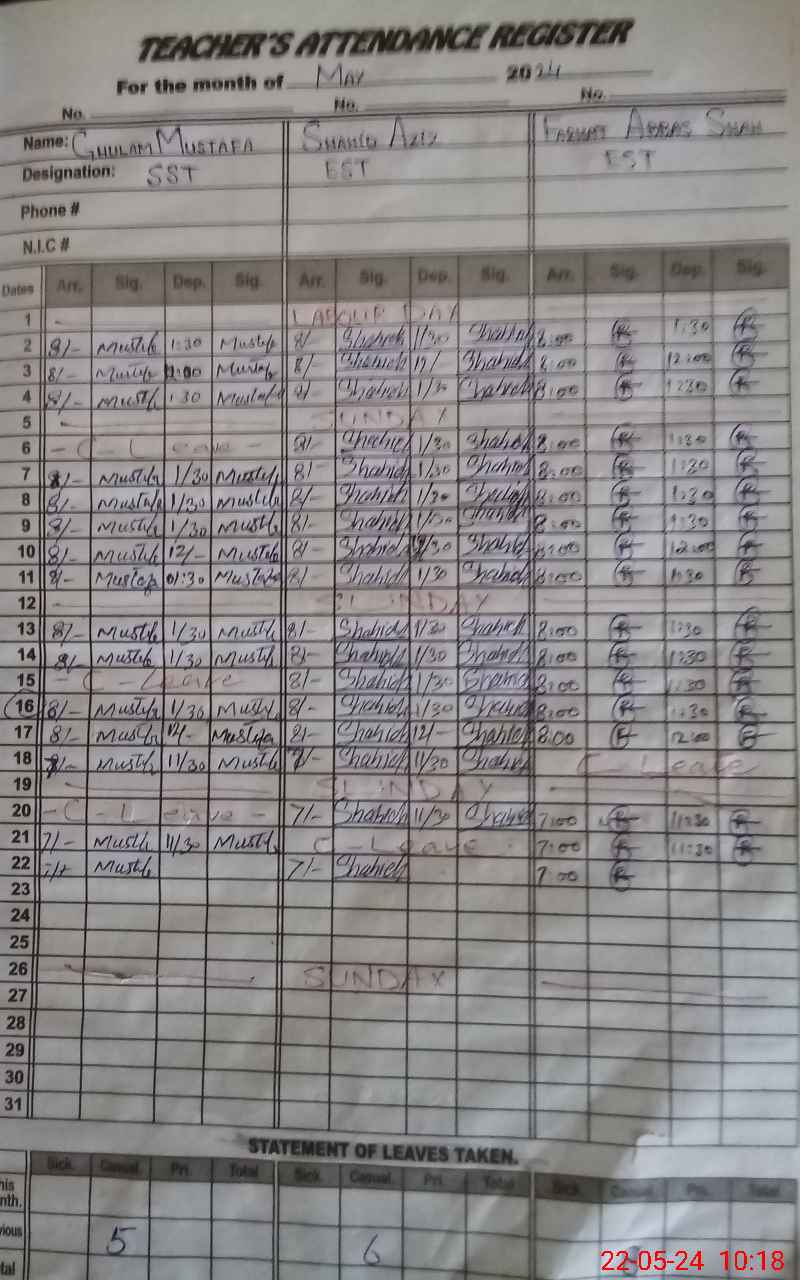 TEACHER'S ATTENDANCE REGISTER
For the month of May 2024
No. No. No.
Name: Ghulam Mustafa Shahid Aziz Farhat Abbas Shah
Designation: SST EST EST
Phone #
N.I.C #
Dates Arr. Sig. Dep. Sig. Arr. Sig. Dep. Sig. Arr. Sig. Dep. Sig.
1 LABOUR DAY
2 8/- Mustafa 1:30 Mustafa 8/- Shahid 1/30 Shahid 8:00 1:30
3 8/- Mustafa 12:00 Mustafa 8/- Shahid 12/ Shahid 8:00 12:00
4 8/- Mustafa 1:30 Mustafa 8/- Shahid 1/30 Shahid 8:00 1:30
5 SUNDAY
6 - C - Leave - 8/- Shahid 1/30 Shahid 8:00 1:30
7 8/- Mustafa 1/30 Mustafa 8/- Shahid 1/30 Shahid 8:00 1:30
8 8/- Mustafa 1/30 Mustafa 8/- Shahid 1/30 Shahid 8:00 1:30
9 8/- Mustafa 1/30 Mustafa 8/- Shahid 1/30 Shahid 8:00 1:30
10 8/- Mustafa 12/- Mustafa 8/- Shahid Shahid 8:00 12:00
11 8/- Mustafa 01:30 Mustafa 8/- Shahid 1/30 Shahid 8:00 1:30
12 SUNDAY
13 8/- Mustafa 1/30 Mustafa 8/- Shahid 1/30 Shahid 8:00 1:30
14 8/- Mustafa 1/30 Mustafa 8/- Shahid 1/30 Shahid 8:00 1:30
15 - C - Leave 8/- Shahid 1/30 Shahid 8:00 1:30
16 8/- Mustafa 1/30 Mustafa 8/- Shahid 1/30 Shahid 8:00 1:30
17 8/- Mustafa 12/- Mustafa 8/- Shahid 12/- Shahid 8:00 12:00
18 7/- Mustafa 11/30 Mustafa 7/- Shahid 11/30 Shahid C - Leave
19 SUNDAY
20 - C - Leave - 7/- Shahid 11/30 Shahid 7:00 11:30
21 7/- Mustafa 11/30 Mustafa C - Leave 7:00 11:30
22 7/- Mustafa 7/- Shahid 7:00
23
24
25
26 SUNDAY
27
28
29
30
31
STATEMENT OF LEAVES TAKEN.
Sick. Casual. Pri. Total Sick. Casual. Pri. Total Sick. Casual. Pri. Total
5 6
22-05-24 10:18